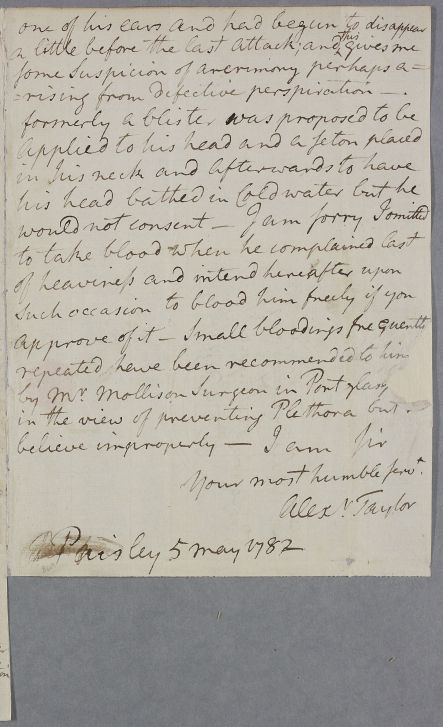 one of his ears and had begun to disappear
a little before the last attack, and this gives me
some Suspicion of an acrimony perhaps a=
=rising from Defective perspiration —.
formerly a blister was proposed to be
applied to his head and a seton placed
in his neck and afterwards to have
his head bathed in Cold water but he
would not consent — I am sorry I omitted
to take blood when he complained last
of heaviness and intend hereafter upon
Such occasion to blood him freely if you
approve of it — Small bloodings frequently
repeated have been recommended to him
by Mr. Mollison Surgeon in Port Glasg
in the view of preventing Plethora but
believe improperly — I am Sir
Your most humble Servt.
Alexr. Taylor
Paisley 5 may 1782